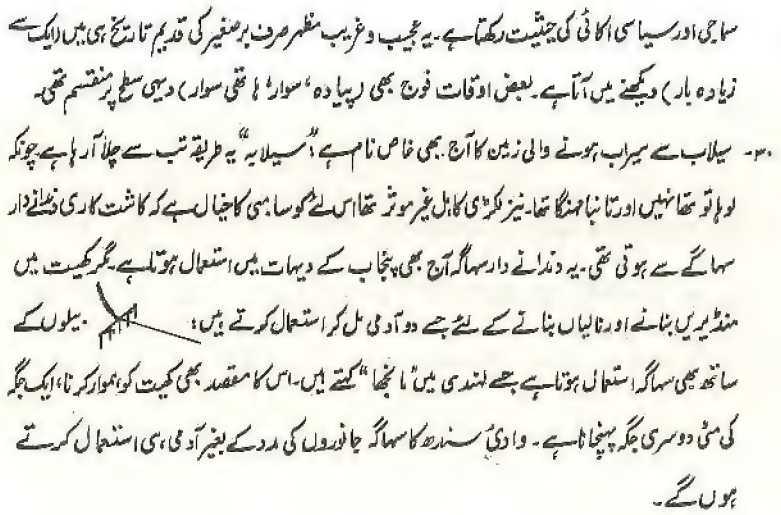 سماجی اور سیاسی اکائی کی حیثیت رکھتا ہے۔ یہ عجیب و غریب مظہر صرف برصغیر کی قدیم تاریخ ہی میں (ایک سے
زیادہ بار) دیکھنے میں آتا ہے۔ بعض اوقات فوج بھی (پیادہ، سوار، ہاتھی سوار) دیہی سطح پر منقسم تھی۔
۳۰۔ سیلاب سے سیراب ہونے والی زمین کا آج بھی خاص نام ہے: "سیلابہ" یہ طریقہ تب سے چلا آ رہا ہے چونکہ
لوہا تو تھا نہیں اور تانبا مہنگا تھا۔ نیز لکڑی کا ہل غیر موثر تھا اس لئے کوسامبی کا خیال ہے کہ کاشت کاری دندانے دار
سہاگے سے ہوتی تھی۔ یہ دندانے دار سہاگہ آج بھی پنجاب کے دیہات میں استعمال ہوتا ہے۔ مگر کھیت میں
منڈیریں بنانے اور نالیاں بنانے کے لئے جسے دو آدمی مل کر استعمال کرتے ہیں: بیلوں کے
ساتھ بھی سہاگہ استعمال ہوتا ہے جسے لہندی میں "مانجھا" کہتے ہیں۔ اس کا مقصد بھی کھیت کو ہموار کرنا، ایک جگہ
کی مٹی دوسری جگہ پہنچانا ہے۔ وادیٔ سندھ کا سہاگہ جانوروں کی مدد کے بغیر آدمی ہی استعمال کرتے
ہوں گے۔